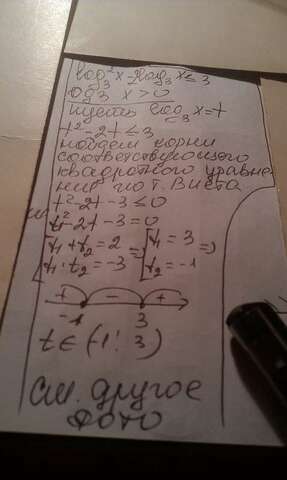 log₃²x - 2log₃x ≤ 3
ОДЗ x > 0
пусть log₃x = t
t² - 2t ≤ 3
найдем корни
соответствующего
квадратного уравне
ния по т. Виета
t² - 2t - 3 ≤ 0
t² - 2t - 3 = 0
[t₁ + t₂ = 2 => [t₁ = 3 =>
[t₁ · t₂ = -3 [t₂ = -1
+ - +
-1 3
t ∈ (-1; 3)
см. другое
фото